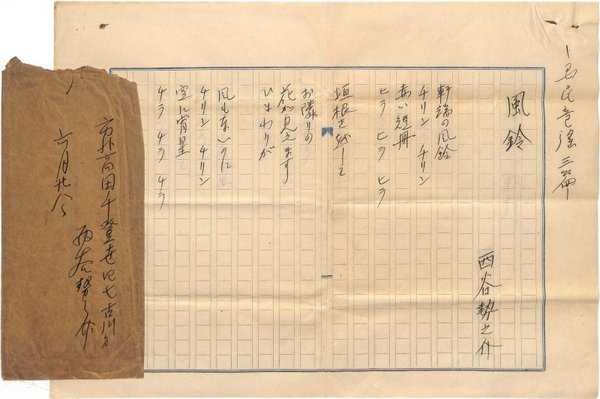 童謡 三篇
風鈴
西谷勢之介
軒端の風鈴
チリン チリン
赤い短冊
ヒラ ヒラ ヒラ
垣根を越して
お隣りの
花が見えます
ひまわりが
風もないのに
チリン チリン
空に宵星
チラ チラ チラ
市外高田千登世町七古川方
西谷勢之介
六月廿八